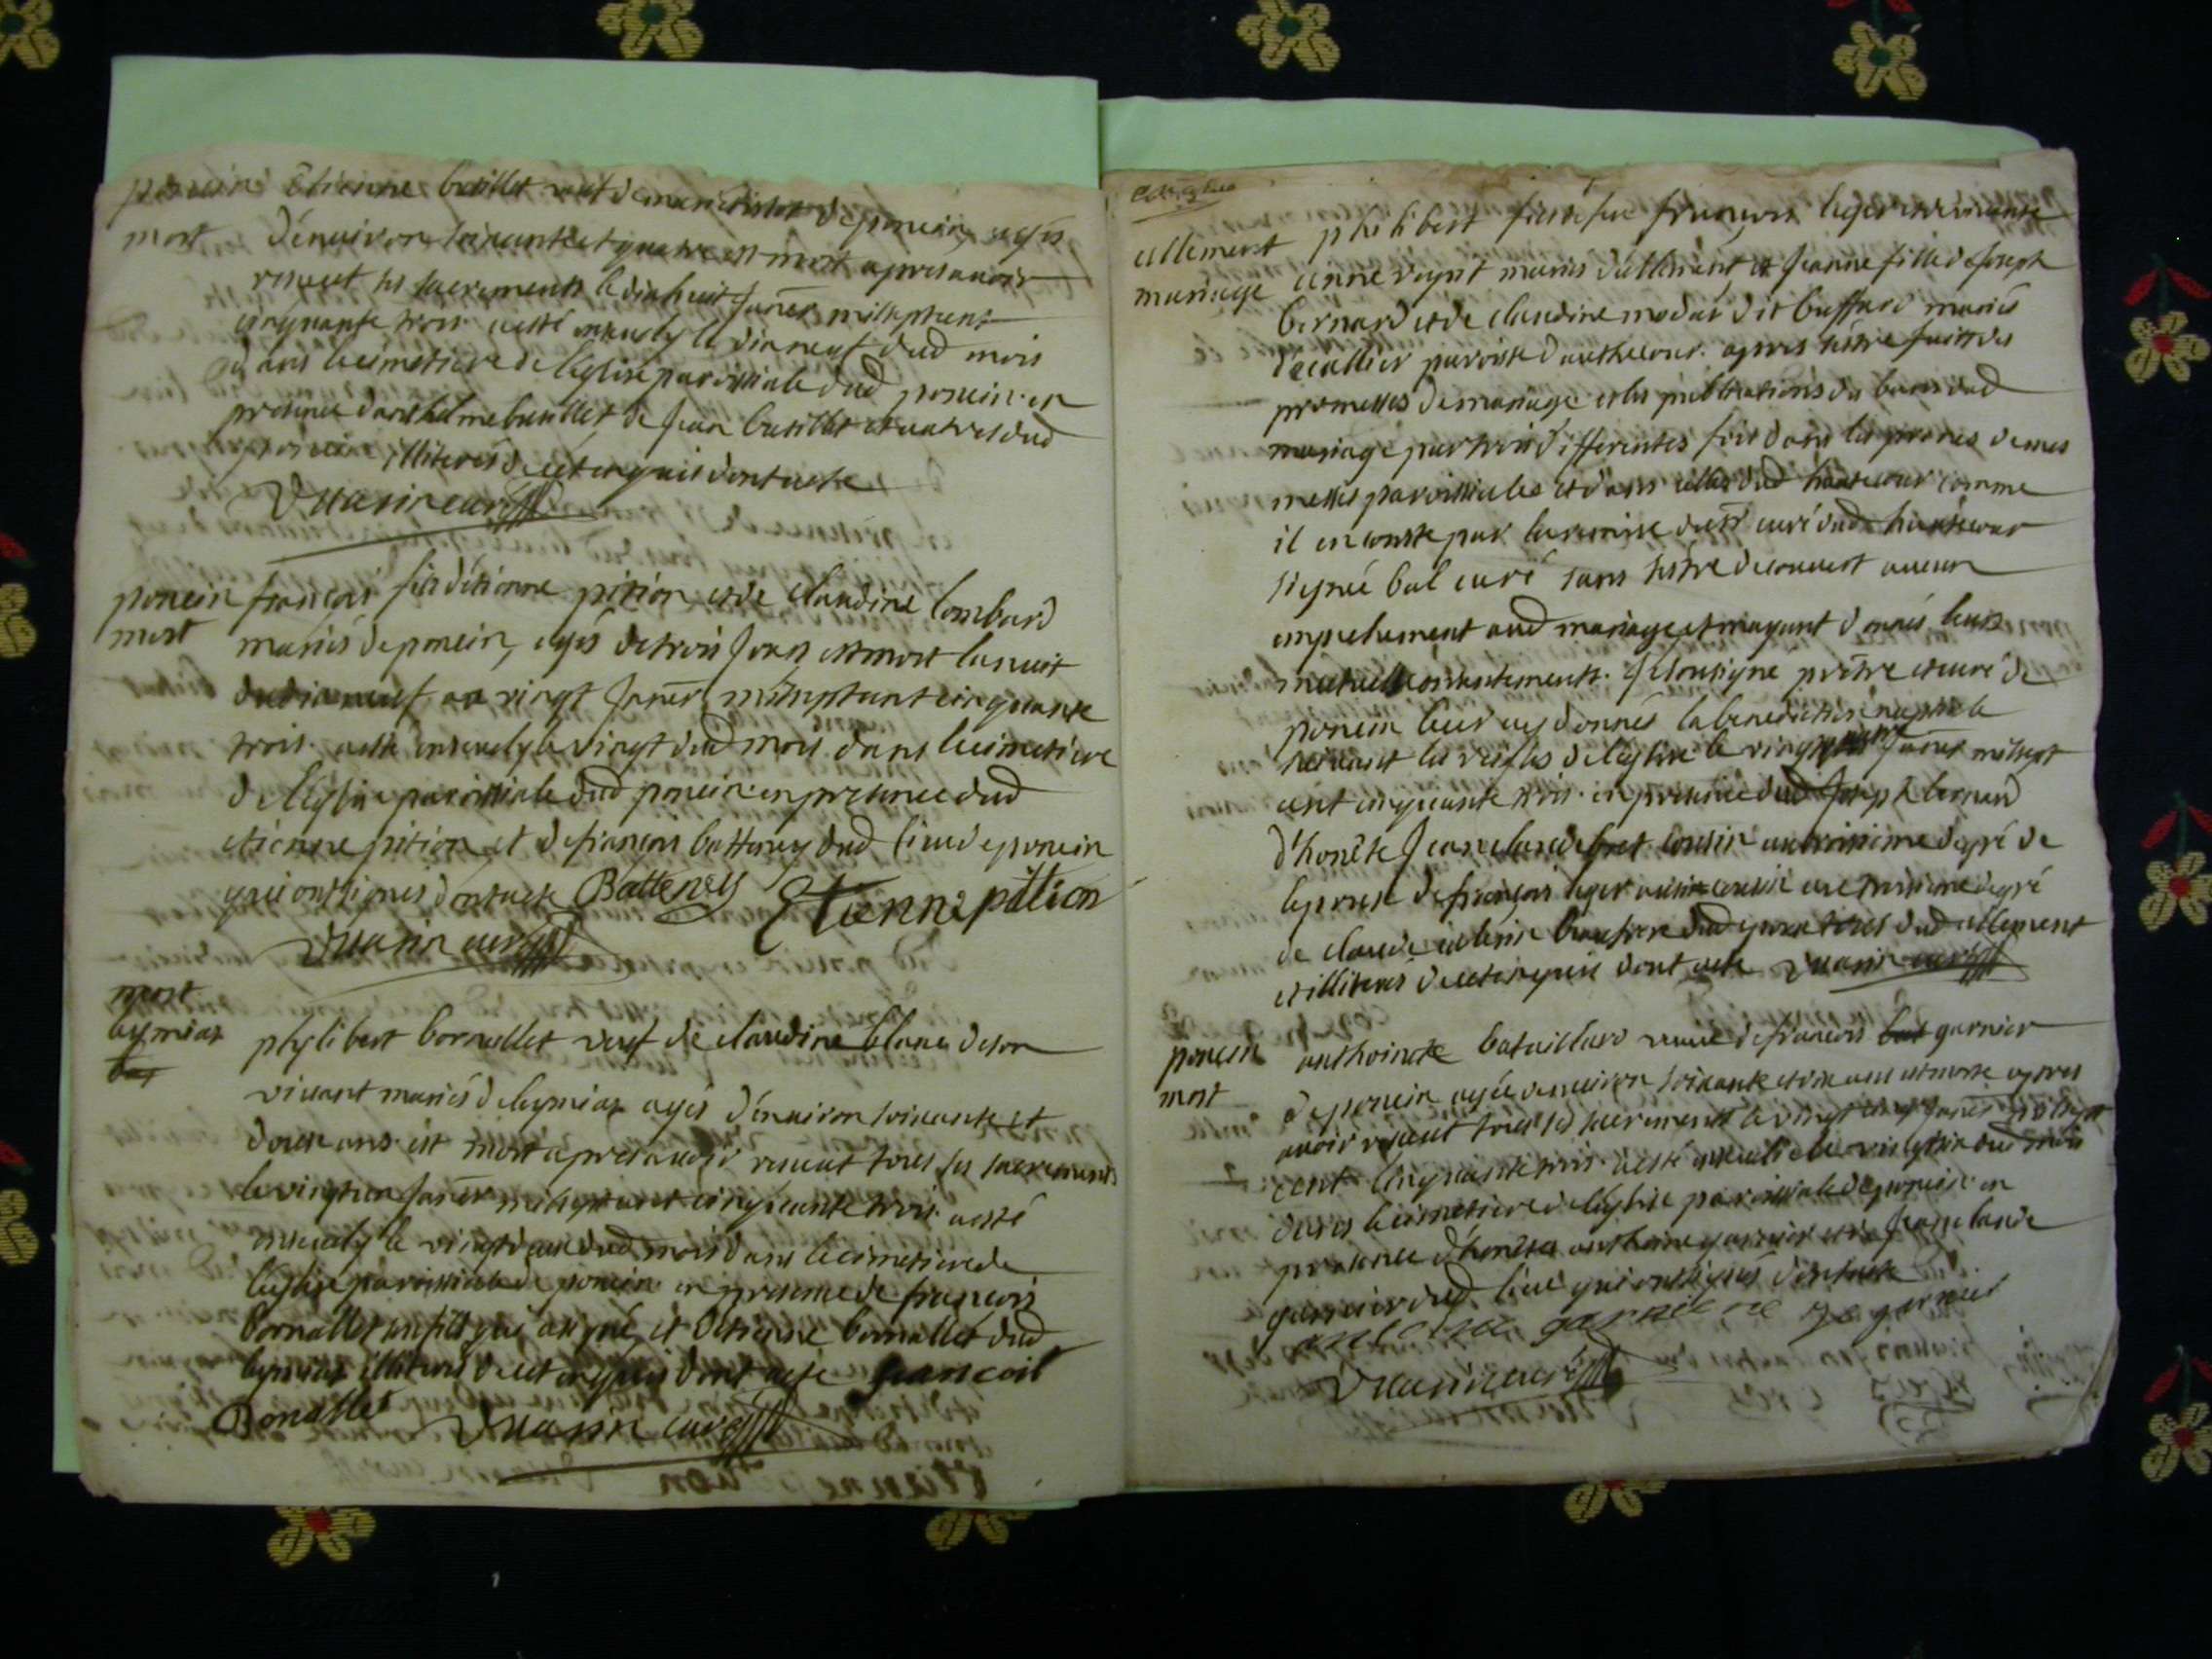 poncin Etienne batillet
mort d'énuiron soixante et quatre est mort apres auoir
receut ses sacrements le dixhuit Janer mil sept cent
cinquante trois. a esté enseuely le dixneuf dud mois
dans le cimetiere de l'église paroissiale dud poncin. en
presence d'anthelme batillet, de Jean batillet et autres dud
poncin illiterés de cet enquis dont acte
Vuarin curé
poncin francois fils d'étienne pition et de claudine lombard
mort mariés de poncin, agés de trois Jours est mort la nuit
du dixneuf au vingt Janer mil sept cent cinquante
trois. a esté enseuely le vingt dud mois. dans le cimetiere
de l'église paroissiale dud poncin. en presence dud
etienne pition et de francois batteney dud lieu de poncin
qui ont signés dont acte Batteney Etienne pition
Vuarin curé
mort
leymiax phylibert bornallet veuf de claudine blanc de son
viuant mariés de leymiax agés d'énuiron soixante et
douze ans. est mort apres auoir receut tous ses sacrements
le vingt un Janer mil sept cent cinquante trois. a esté
enseuely le vingt deux dud mois dans le cimetiere de
l'église paroissiale de poncin. en presence de francois
bornallet un fils qui a signé, et d'etienne bornallet dud
leymiax illiteres de cet enquis dont acte francois
Bonallet Vuarin curé
allement philibert fils de feu francois leger et de viuante
mariage anne mariés d'allement, et Jeanne fille de Joseph
bernard et de claudine dit buffard mariés
paroisse d'authecour. apres s'estre faitt des
promesses de mariage et les publications des bans dud
mariage par trois differentes fois dans les prones de mes
messes paroissiales et dans celles dud hautecour comme
il en conste par la remise du sr curé dud hautecour
signée bal curé sans s'estre decouuert aucun
empechement aud mariage et m'ayant donnés leurs
mutuels consentements. Je soussigné prêtre et curé de
poncin leur ay donnés la benediction nuptiale
suiuant les reigles de l'église le Janer mil sept
cent cinquante trois. en presence dud Joseph bernard
d'honête Jean claude cousin au troisieme degré de
l'epouse de francois leger aussi cousin au troisieme degré
de claude beaufrere dud epoux tous dud allement
et illiterés de cet enquis dont acte Vuarin curé
poncin anthoinete bataillard veuue de francois garnier
mort de poncin agée d'énuiron soixante et dix ans est morte apres
auoir receut tous ses sacrements le vingt cinq Janer mil sept
cent cinquante trois. a esté enseuelie le vingt six dud mois
dans le cimetiere de l'église paroissiale de poncin. en
presence d'honêtes anthoine garnier et de Jean claude
garnier dud lieu qui ont signés dont acte
garnier
Vuarin curé